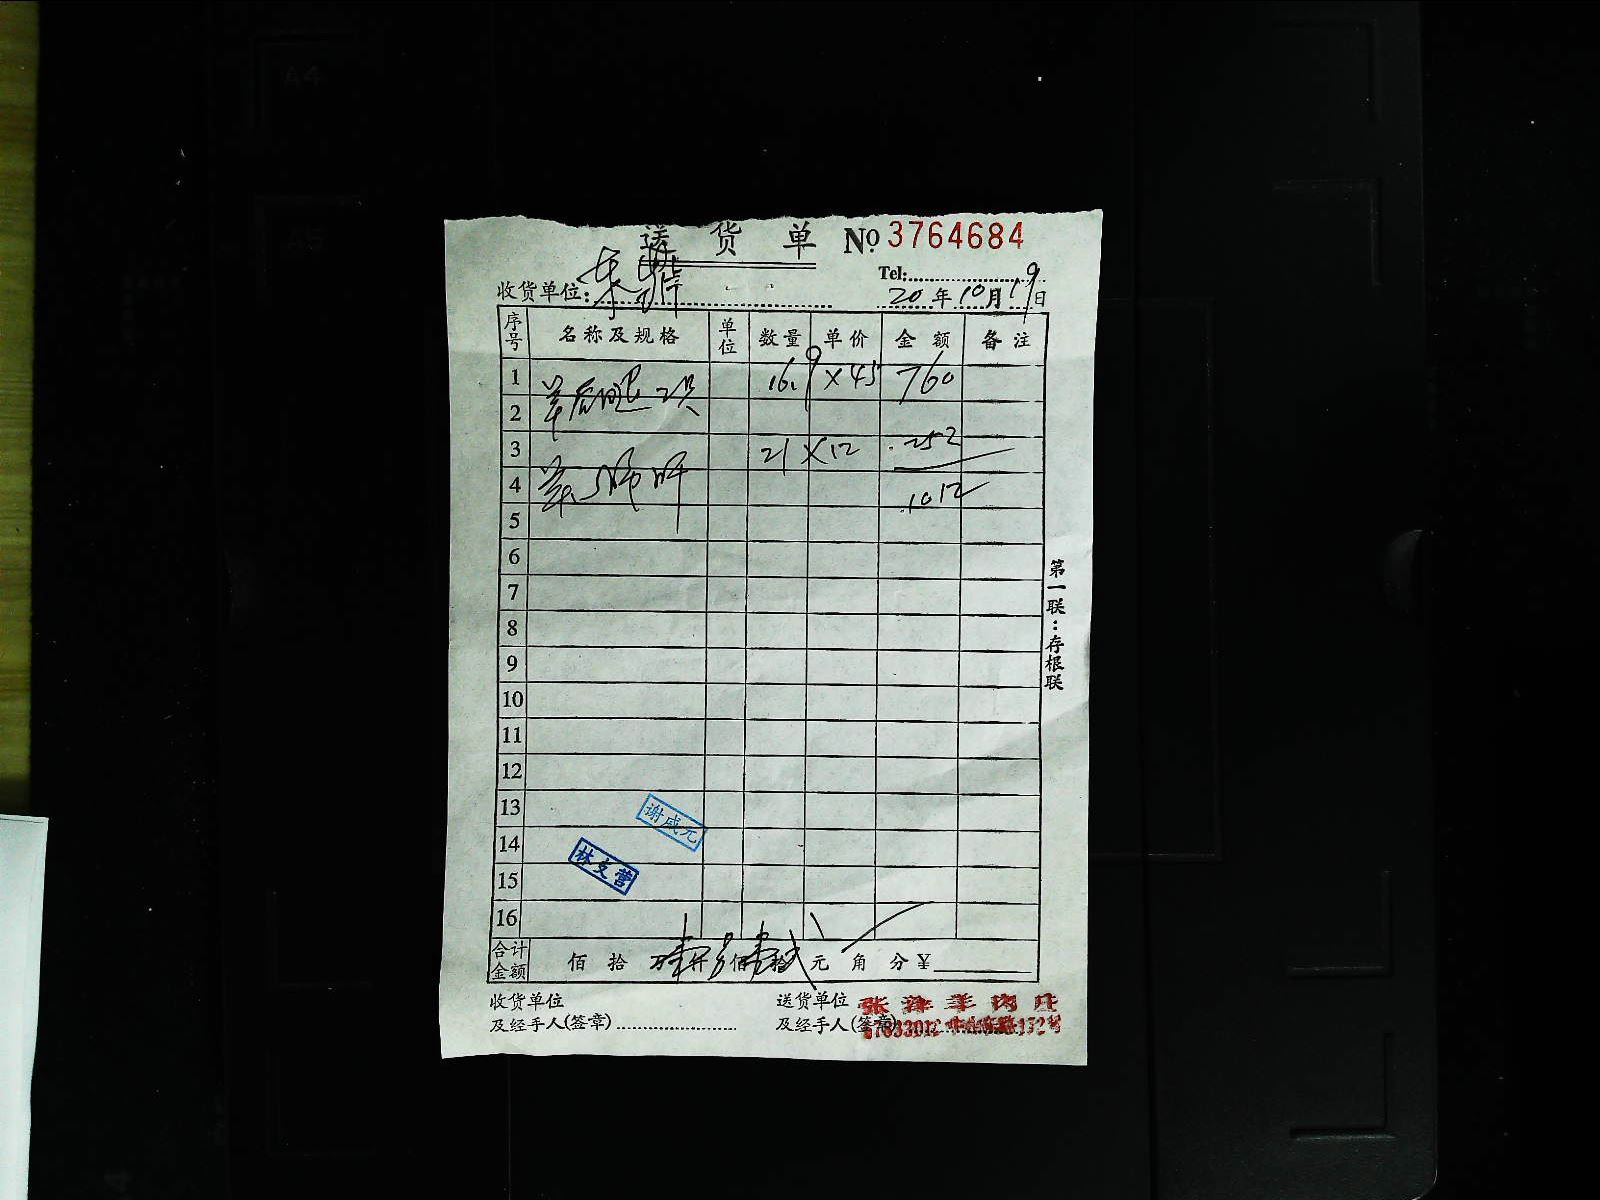 送 货 单 № 3764684
Tel:
收货单位: 20 年 10 月 19 日
序号 名称及规格 单位 数量 单价 金额 备注
1 羊后腿 16.9 × 45 760
2
3 21 × 12 252
4 羊 1012
5
6
7
8
9
10
11
12
13 谢成元
14
15 林文营
16
合计金额 佰 拾 万 仟 佰 拾 元 角 分 ¥
收货单位 送货单位
及经手人(签章) 及经手人(签章)
第一联:存根联
A4
A5